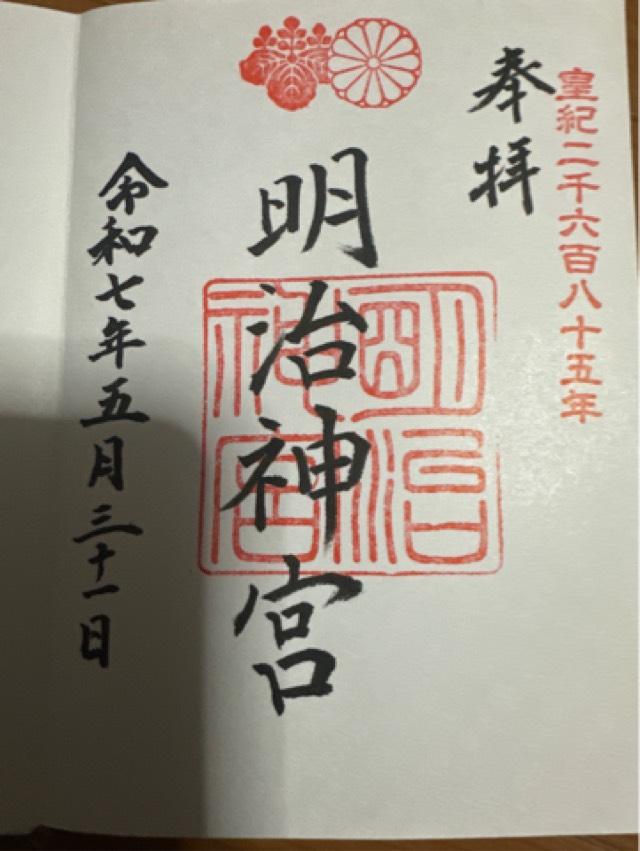 皇紀二千六百八十五年
奉拝
明治神宮
明治神宮
令和七年五月三十一日